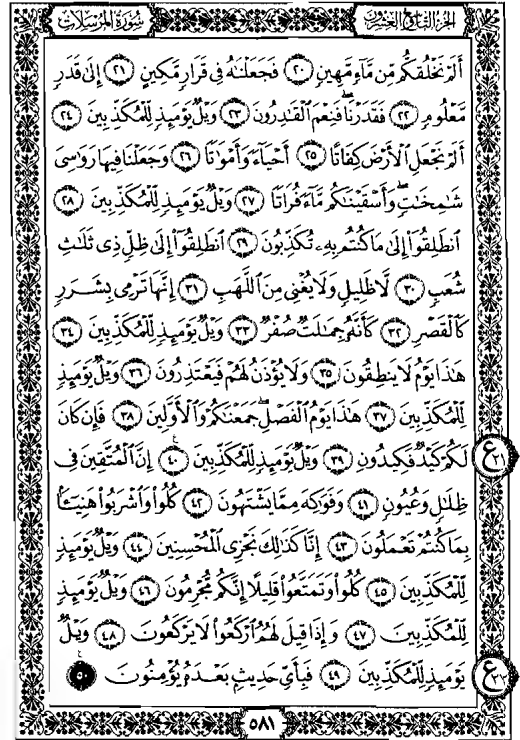 سُورَةُ المُرْسَلَات
الجُزْءُ التَّاسِعُ وَالعِشْرُونَ
أَلَمْ نَخْلُقكُّم مِّن مَّآءٍ مَّهِينٍ ٢٠ فَجَعَلْنَٰهُ فِى قَرَارٍ مَّكِينٍ ٢١ إِلَىٰ قَدَرٍ
مَّعْلُومٍ ٢٢ فَقَدَرْنَا فَنِعْمَ ٱلْقَٰدِرُونَ ٢٣ وَيْلٌ يَوْمَئِذٍ لِّلْمُكَذِّبِينَ ٢٤
أَلَمْ نَجْعَلِ ٱلْأَرْضَ كِفَاتًا ٢٥ أَحْيَآءً وَأَمْوَٰتًا ٢٦ وَجَعَلْنَا فِيهَا رَوَٰسِىَ
شَٰمِخَٰتٍ وَأَسْقَيْنَٰكُم مَّآءً فُرَاتًا ٢٧ وَيْلٌ يَوْمَئِذٍ لِّلْمُكَذِّبِينَ ٢٨
ٱنطَلِقُوٓا۟ إِلَىٰ مَا كُنتُم بِهِۦ تُكَذِّبُونَ ٢٩ ٱنطَلِقُوٓا۟ إِلَىٰ ظِلٍّ ذِى ثَلَٰثِ
شُعَبٍ ٣٠ لَّا ظَلِيلٍ وَلَا يُغْنِى مِنَ ٱللَّهَبِ ٣١ إِنَّهَا تَرْمِى بِشَرَرٍ
كَٱلْقَصْرِ ٣٢ كَأَنَّهُۥ جِمَٰلَتٌ صُفْرٌ ٣٣ وَيْلٌ يَوْمَئِذٍ لِّلْمُكَذِّبِينَ ٣٤
هَٰذَا يَوْمُ لَا يَنطِقُونَ ٣٥ وَلَا يُؤْذَنُ لَهُمْ فَيَعْتَذِرُونَ ٣٦ وَيْلٌ يَوْمَئِذٍ
لِّلْمُكَذِّبِينَ ٣٧ هَٰذَا يَوْمُ ٱلْفَصْلِ جَمَعْنَٰكُمْ وَٱلْأَوَّلِينَ ٣٨ فَإِن كَانَ
لَكُمْ كَيْدٌ فَكِيدُونِ ٣٩ وَيْلٌ يَوْمَئِذٍ لِّلْمُكَذِّبِينَ ٤٠ إِنَّ ٱلْمُتَّقِينَ فِى
ع ٢١
ظِلَٰلٍ وَعُيُونٍ ٤١ وَفَوَٰكِهَ مِمَّا يَشْتَهُونَ ٤٢ كُلُوا۟ وَٱشْرَبُوا۟ هَنِيٓـًٔۢا
بِمَا كُنتُمْ تَعْمَلُونَ ٤٣ إِنَّا كَذَٰلِكَ نَجْزِى ٱلْمُحْسِنِينَ ٤٤ وَيْلٌ يَوْمَئِذٍ
لِّلْمُكَذِّبِينَ ٤٥ كُلُوا۟ وَتَمَتَّعُوا۟ قَلِيلًا إِنَّكُم مُّجْرِمُونَ ٤٦ وَيْلٌ يَوْمَئِذٍ
لِّلْمُكَذِّبِينَ ٤٧ وَإِذَا قِيلَ لَهُمُ ٱرْكَعُوا۟ لَا يَرْكَعُونَ ٤٨ وَيْلٌ
يَوْمَئِذٍ لِّلْمُكَذِّبِينَ ٤٩ فَبِأَىِّ حَدِيثٍۭ بَعْدَهُۥ يُؤْمِنُونَ ٥٠
ع ٢٢
٥٨١